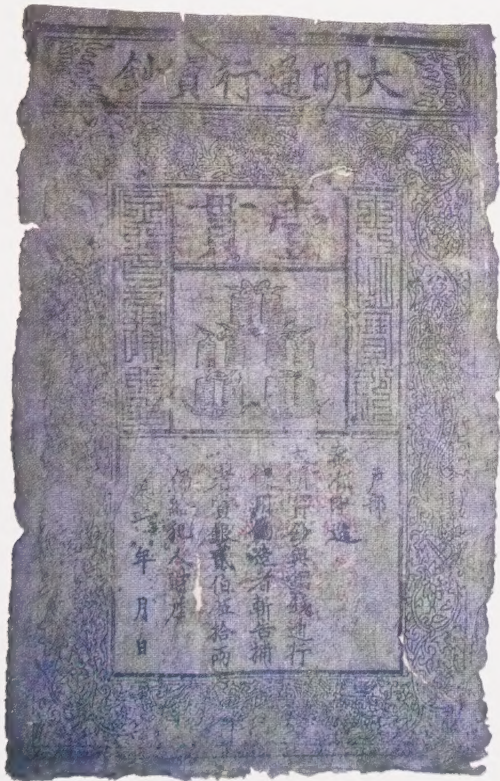 大明通行寶鈔
壹貫
戶部
奏准印造
大明寶鈔與銅錢通行
使用偽造者斬告捕
者賞銀貳伯伍拾兩
仍給犯人財產
年 月 日